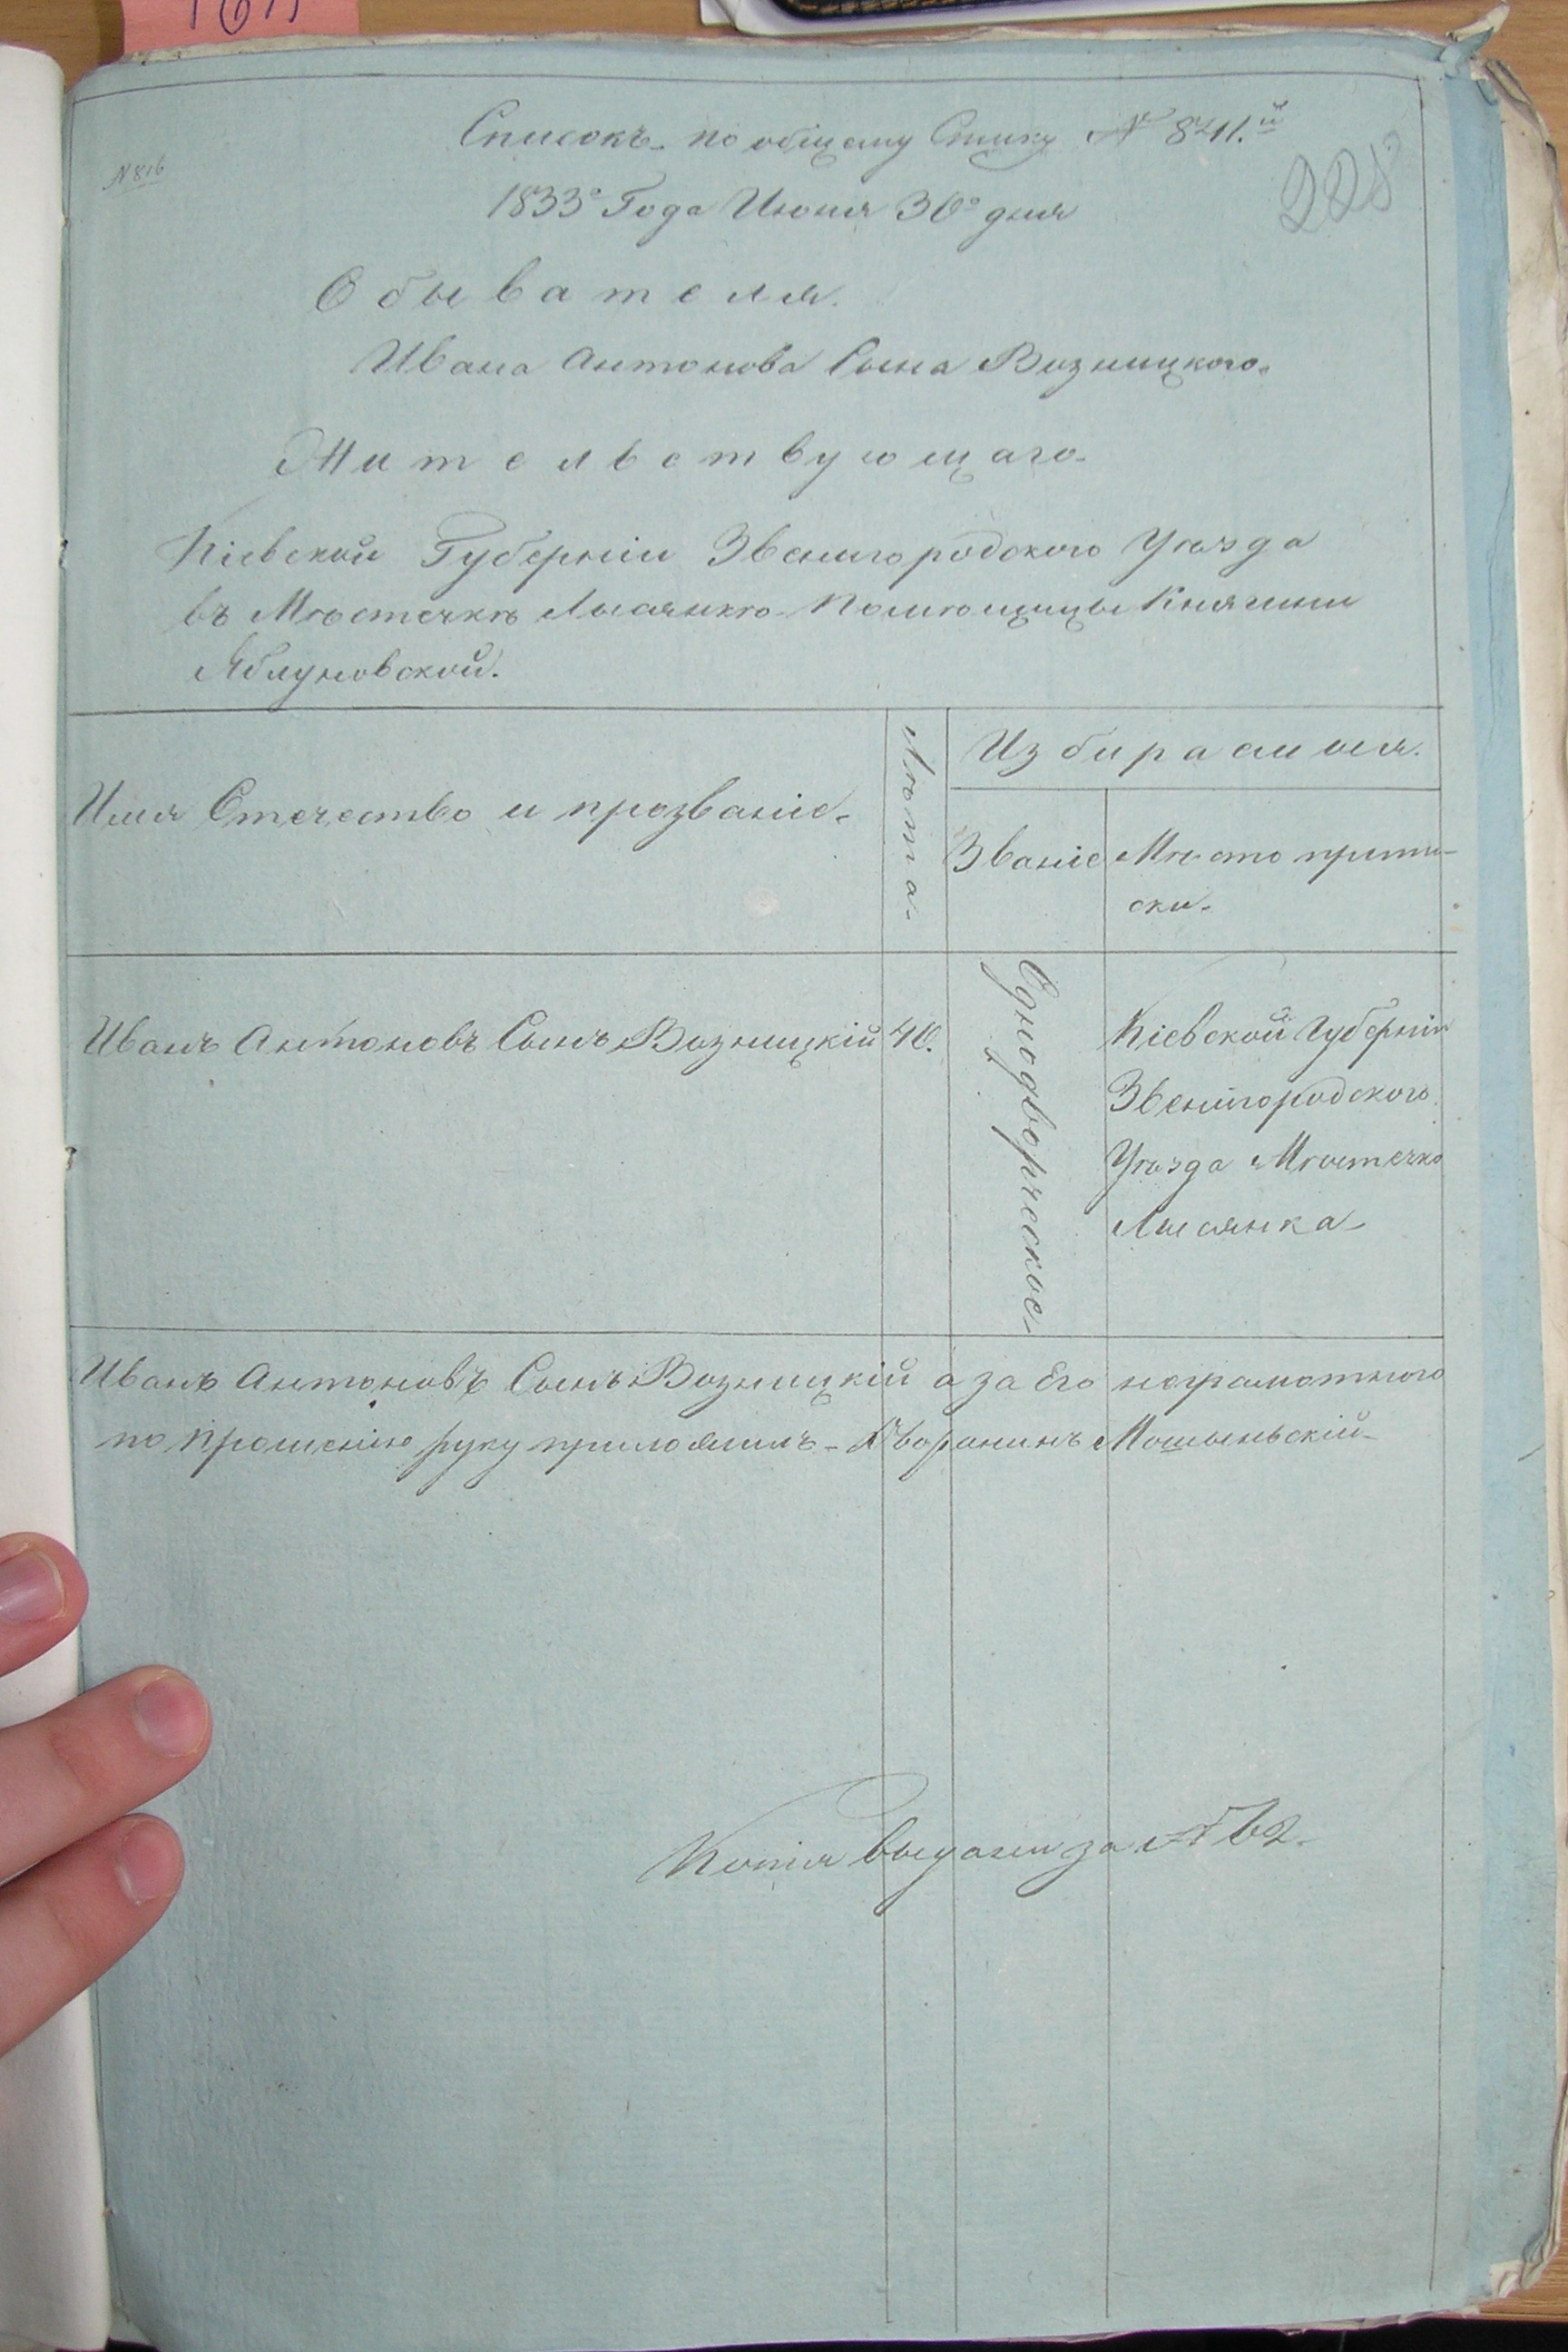 N 816
Списокъ по общему Списку № 841.й
228
1833го Года Июня 30го дня
Обывателя.
Ивана Антонова Сына Возницкого.
Жительствующаго
Кіевской Губерніи Звенигородского Уѣзда
въ Мѣстечкѣ Лысянкѣ Помѣщицы Княгини
Яблуновской.
Имя Отечество и прозваніе
Лѣта
Избираемыя.
Званіе
Мѣсто припи-
ски.
Иванъ Антоновъ Сынъ Возницкій
40.
Однодворческое
Кіевской Губерніи
Звенигородского
Уѣзда Мѣстечко
Лысянка
Иванъ Антоновъ Сынъ Возницкій а за Его неграмотного
по прошенію руку приложилъ Дворанинъ Мошыньскій
Копія выдана за №